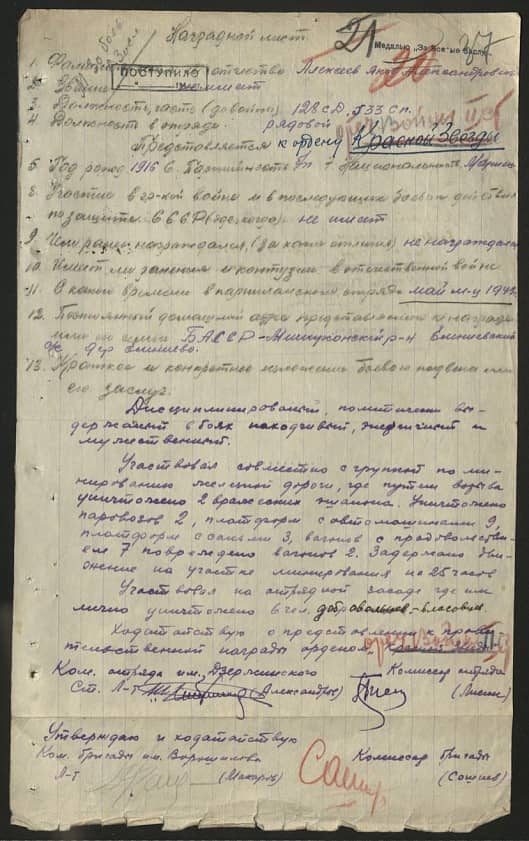 Наградной лист
21
Медалью "За боевые заслуги"
37
20
ПОСТУПИЛО
1. Фамилия отчество Алексеев Яков Александрович
2. Звание не имеет
3. Должность, часть (довойны) 128 с.д. 533 с.п.
4. Должность в отряде рядовой
Представляется к ордену Красной Звезды
5. Год рожд 1916 6. Партийность б/п 7. Национальность
8. Участие в гр-кой войне и в последующих боевых действиях
по защите СССР (где, когда) не имеет
9. Чем ранее награждался, (за какие отличия) не награждался
10. Имеет ли ранения и контузии в отечественной войне
11. С какого времени в партизанском отряде май м-ц 1942г.
12. Постоянный домашний адрес представляемого к награде
БАССР-Мишкинский р-н
дер.
13. Краткое и конкретное изложение боевого подвига или
его заслуг.
Дисциплинированый, политически вы-
держанный в боях находчивый, энергичный и
мужественный.
Участвовал совместно с группой по ми-
нированию железной дороги, где путем взрыва
уничтожено 2 вражеских эшалона. Уничтожено
паровозов 2, платформ с автомашинами 9,
платформ с 3, вагонов с продовольстви-
ем 7 повреждено вагонов 2. Задержано дви-
жение на участке минирования на 25 часов
Участвовал на отрядной засаде где им
лично уничтожено 6 чел. добровольцев-власовцев.
Ходатайствую о представлении к прави-
тельственной награды орденом
Ком. отряда им. Дзержинского Комиссар отряда
Ст. Л-т (Александров) (Лисин)
Утверждаю и ходатайствую
Ком. бригады им. Ворошилова Комиссар бригады
Л-т (Макаров)